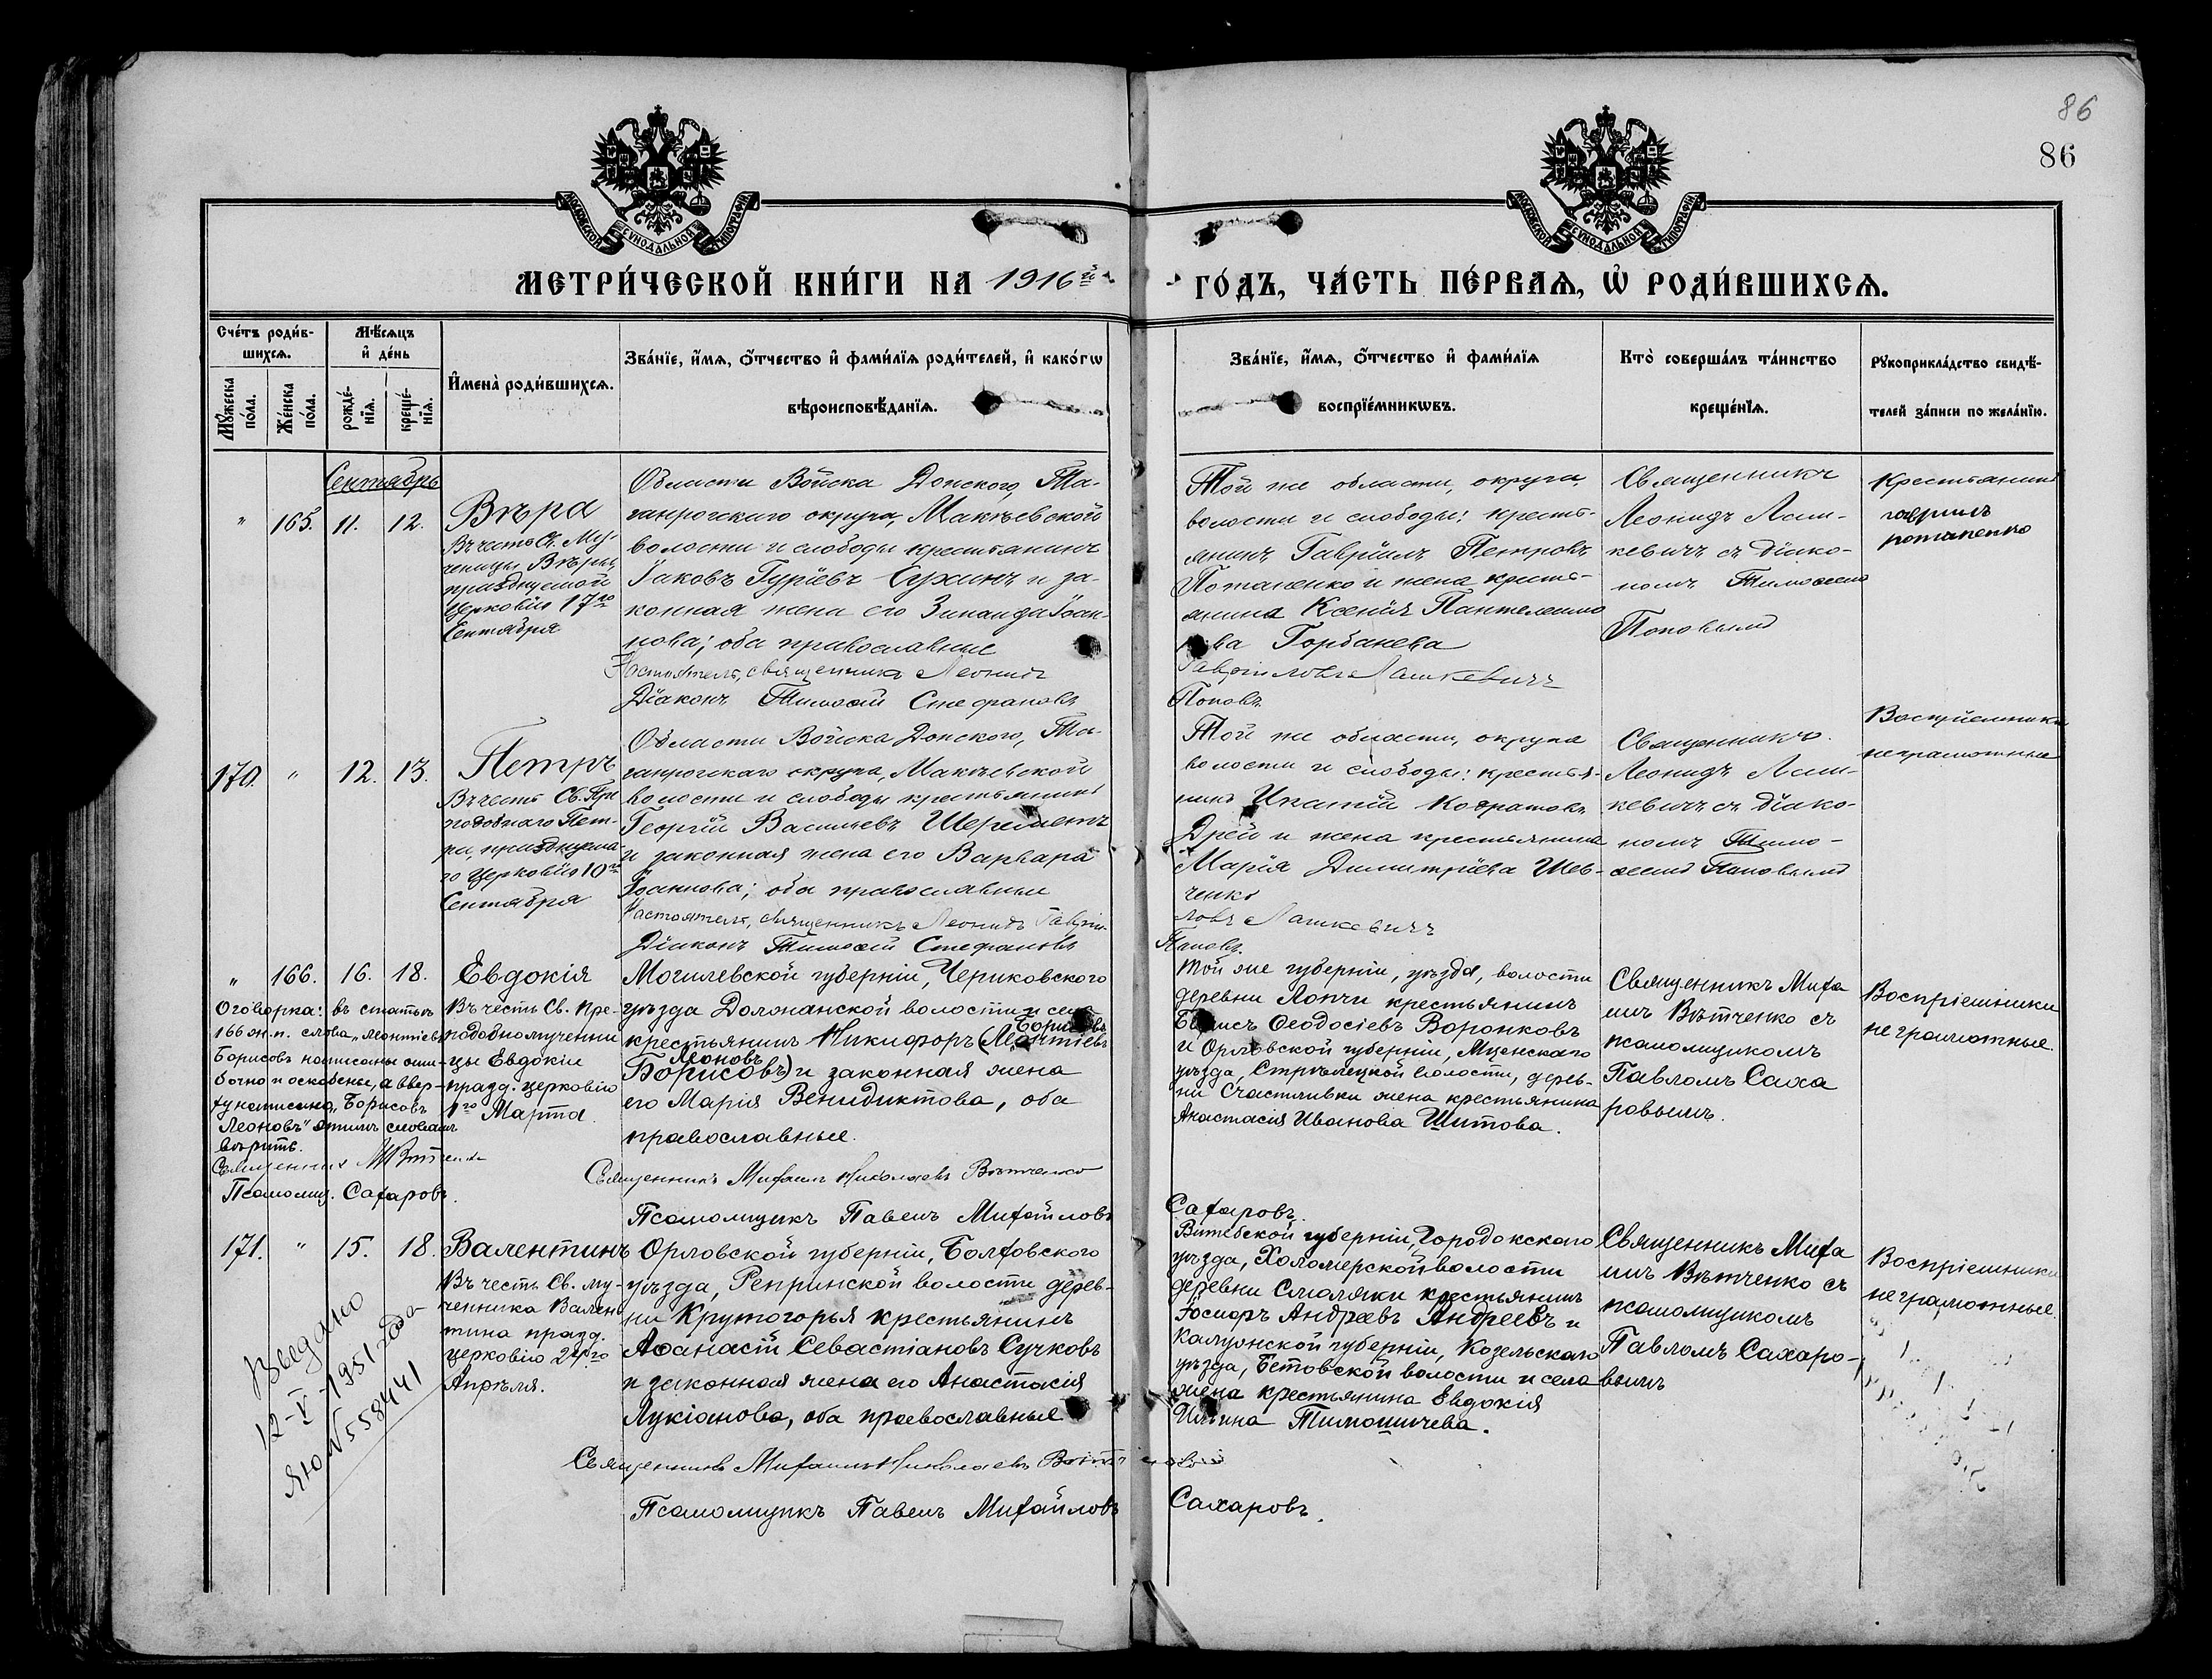 86
86
МОСКОВСКОЙ СѴНОДАЛЬНОЙ ТИПОГРАФІИ
МОСКОВСКОЙ СѴНОДАЛЬНОЙ ТИПОГРАФІИ
МЕТРИ́ЧЕСКОЙ КНИ́ГИ НА 1916й
ГО́ДЪ, ЧА́СТЬ ПЕ́РВАѦ, Ѽ РОДИ́ВШИХСѦ.
Сче́тъ роди́в-
шихсѧ.
Мѣ́сѧцъ
и҆ де́нь
Мꙋ́жеска
по́ла.
Же́нска
по́ла.
рожде́-
нїѧ.
креще́-
нїѧ.
И҆мена̀ роди́вшихсѧ.
Зва́нїе, и҆́мѧ, ѻ҆́тчество и҆ фами́лїѧ роди́телей, и҆ како́гѡ
вѣроисповѣ́данїѧ.
Зва́нїе, и҆́мѧ, ѻ҆́тчество и҆ фами́лїѧ
воспрїе́мникѡвъ.
Кто̀ соверша́лъ та́инство
креще́нїѧ.
Рꙋкоприкла́дство свидѣ́-
телей за́писи по жела́нїю.
Сентябрь
" 165. 11. 12.
Вѣра
Въ честь Св. Му-
ченицы Вѣры,
празднуемой
Церковію 17го
Сентября
Области Войска Донского, Та-
ганрогскаго округа, Макѣевской
волости и слободы крестьянинъ
Іаковъ Гуріевъ и за-
конная жена его Зинаида Іоан-
нова; оба православные
Настоятель, священникъ Леонидъ
Діаконъ Тимоѳей Стефановъ
Той же области, округа,
волости и слободы: кресть-
янинъ Гавріилъ Петровъ
Потапенко и жена кресть-
янина Ксенія Пантелеимо
нова Горбанева
Гавріиловъ Лашкевичъ
Поповъ
Священникъ
Леонидъ Лаш-
кевичъ съ діако-
номъ Тимоѳеемъ
Поповымъ
Крестьянинъ
гаврилъ
потапенко
170. " 12. 13.
Петръ
Въ честь Св. Пре
подобнаго Пет-
ра, празднуема-
го Церковію 10го
Сентября
Области Войска Донского, Та-
ганрогскаго округа, Макѣевской
волости и слободы крестьянинъ
Георгій Васильевъ Шереметъ
и законная жена его Варвара
Іоаннова; оба православные
Настоятель, священникъ Леонидъ Гавріи-
Діаконъ Тимоѳей Стефановъ
Той же области, округа
волости и слободы: крестья-
нинъ Ипатій Кодратовъ
Дрей и жена крестьянина
Марія Димитріева Шев-
ченко
ловъ Лашкевичъ
Поповъ.
Священникъ
Леонидъ Лаш-
кевичъ съ діако-
номъ Тимо-
ѳеемъ Поповымъ
Воспріемники
неграмотные
" 166. 16. 18.
Оговорка: въ статьѣ
166 ж. п. слова „Леонтіевъ
Борисовъ написаны оши-
бочно и оскоблены, а ввер-
ху написано „Борисовъ
Леоновъ" этимъ словамъ
вѣрить.
Священникъ М Вѣтченко
Псаломщ. Сахаровъ.
Евдокія
Въ честь Св. Пре-
подобномучени
цы Евдокіи
празд. церковію
1го Марта.
Могилевской губерніи, Чериковскаго
уѣзда Должанской волости и села
крестьянинъ Никифоръ (Леонтіевъ
Борисовъ
Леоновъ
Борисовъ) и законная жена
его Марія Венидиктова, оба
православные.
Священникъ Михаилъ Николаевъ Вѣтченко
Псаломщикъ Павелъ Михайловъ
Той же губерніи, уѣзда, волости
деревни Лопчи крестьянинъ
Борисъ Ѳеодосіевъ Воронковъ
и Орловской губерніи, Мценскаго
уѣзда, Стрѣлецкой волости, дерев-
ни Счастливки жена крестьянина
Анастасія Иванова Шитова.
Сахаровъ.
Священникъ Миха
илъ Вѣтченко съ
псаломщикомъ
Павломъ Саха
ровымъ.
Воспріемники
неграмотные.
171. " 15. 18.
Валентинъ
Въ честь Св. му-
ченника Вален
тина празд.
церковію 24го
Апрѣля.
12-V-1951 года
ЯЮ № 558441
Орловской губерніи, Болховского
уѣзда, Репринской волости дерев-
ни Крутогорья крестьянинъ
Аѳанасій Севастіановъ Сучковъ
и законная жена его Анастасія
Лукіанова, оба православные
Священникъ Михаилъ Николаевъ Вѣтченко
Псаломщикъ Павелъ Михайловъ
Витебской губерніи, Городокскаго
уѣзда, Холомерской волости
деревни Смоляки крестьянинъ
Андреевъ Андреевъ и
Калужской губерніи, Козельскаго
уѣзда, Бетовской волости и села
жена крестьянина Евдокія
Ильина Тимошичева.
Сахаровъ.
Священникъ Миха
илъ Вѣтченко съ
псаломщикомъ
Павломъ Сахаро-
вымъ
Воспріемники
неграмотные.